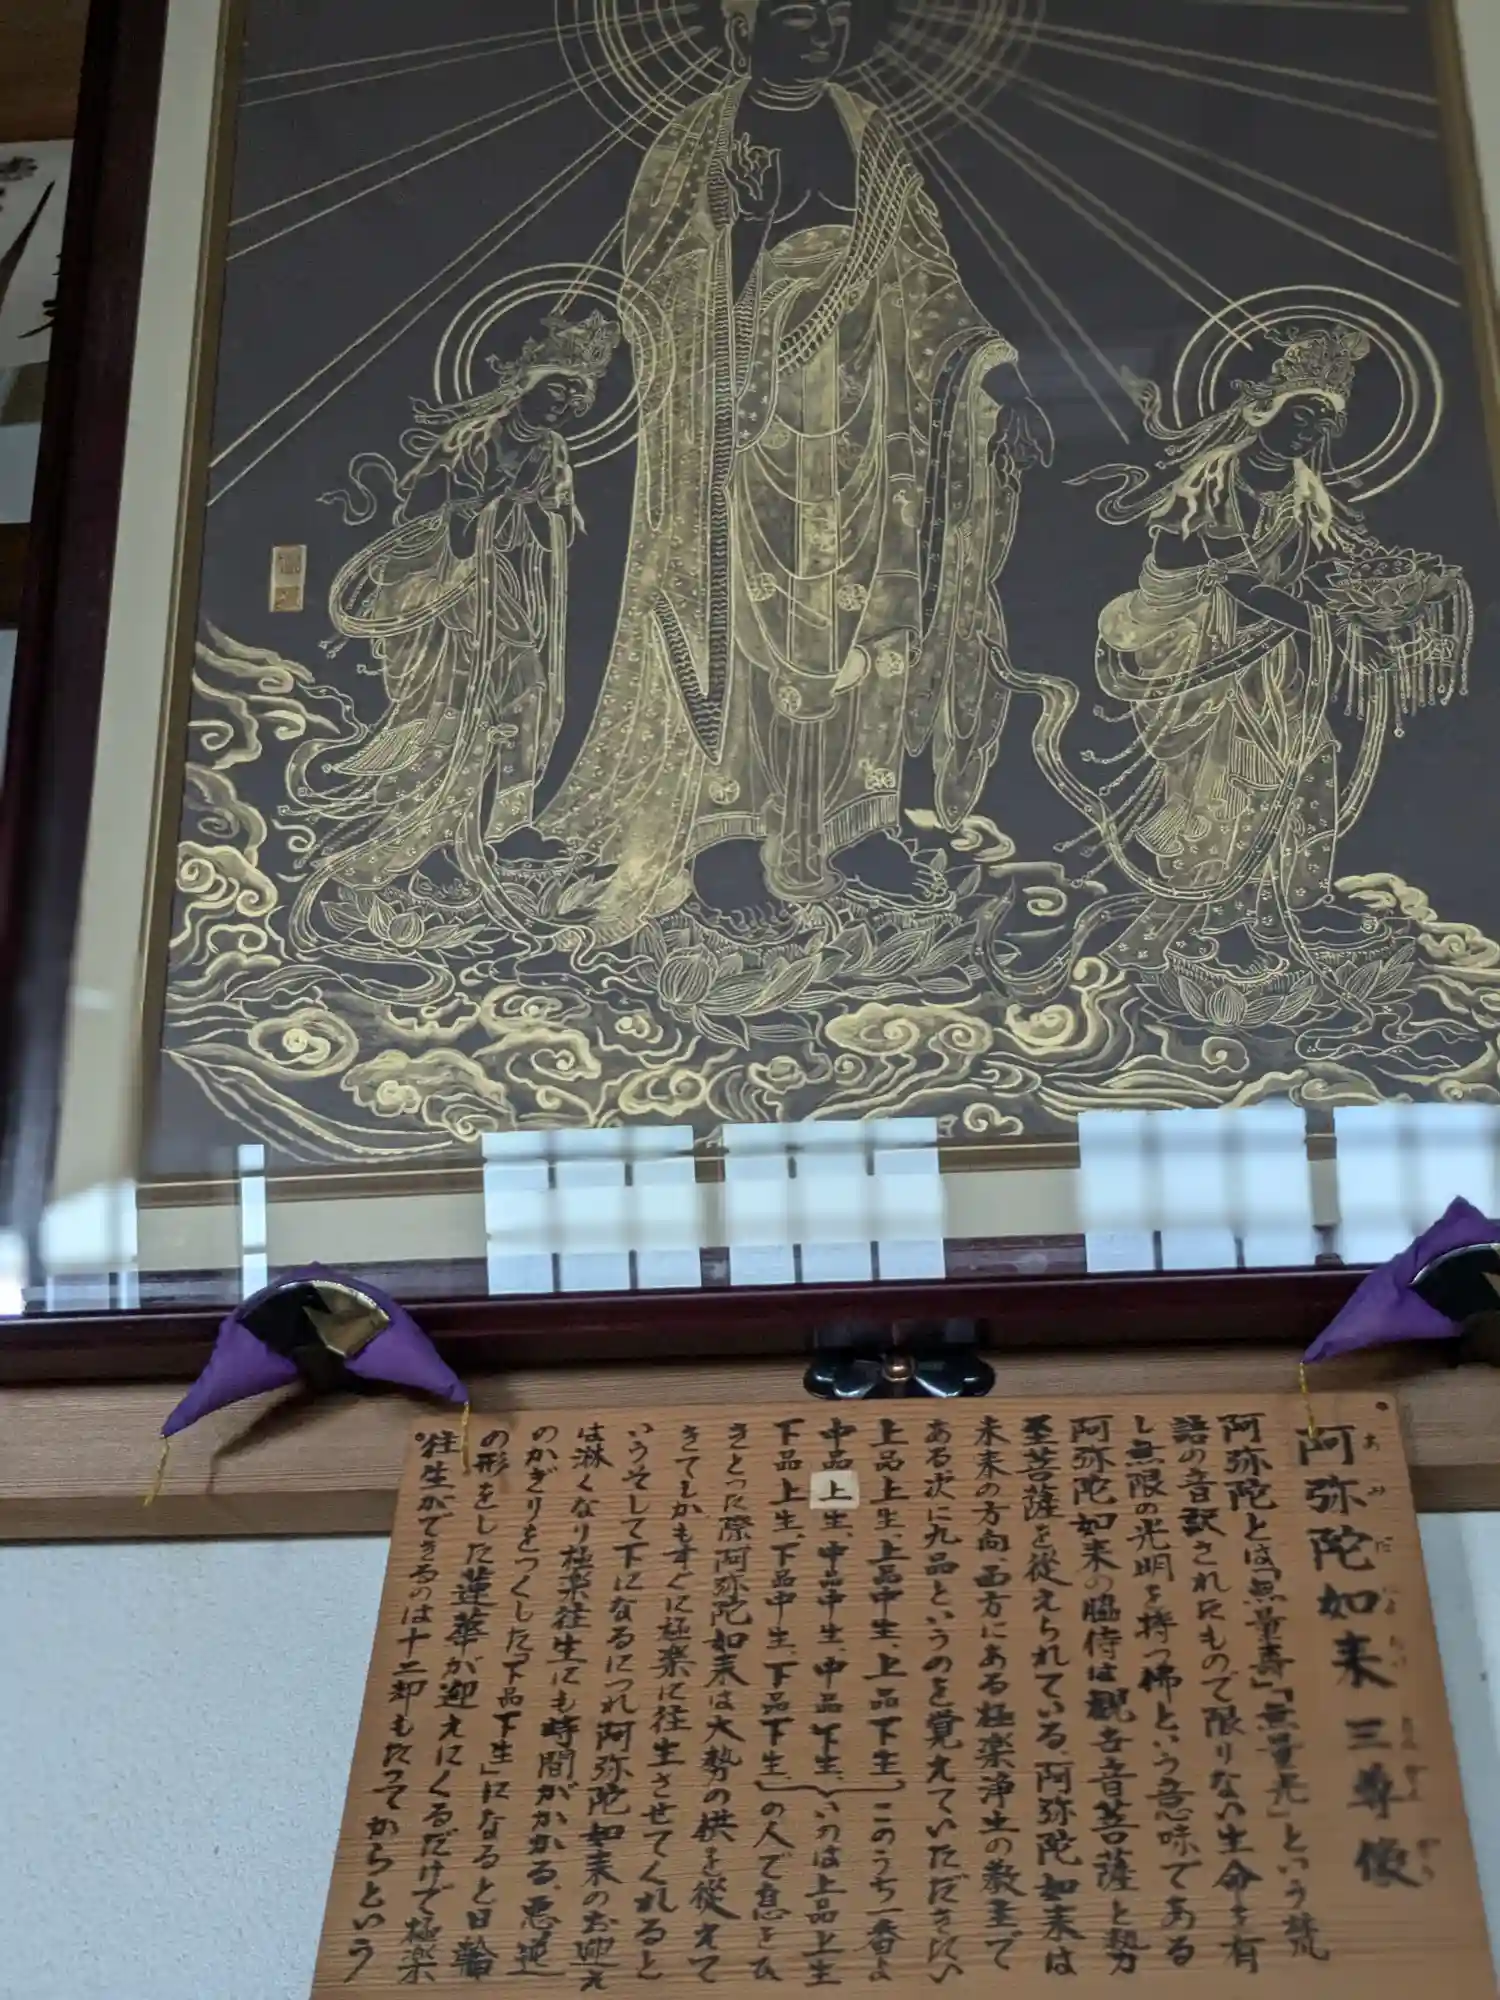 阿弥陀如来三尊像
あみだによらい
阿弥陀とは「無量寿」「無量光」という梵
語の音訳されたもので限りない生命を有
し無限の光明を持つ佛という意味である
阿弥陀如来の脇侍は観世音菩薩と勢
至菩薩を従えられている、阿弥陀如来は
未来の方向、西方にある極楽浄土の教主で
ある次に九品というのを覚えていただきたい
上品上生、上品中生、上品下生、このうち一番よ
中品上生、中品中生、中品下生、いのは上品上生
下品上生、下品中生、下品下生、の人で息をひ
きとった際阿弥陀如来は大勢の供を従えて
きてしかもすぐに極楽に往生させてくれると
いうそして下になるにつれ阿弥陀如来のお迎え
は淋くなり極楽往生にも時間がかかる、悪逆
のかぎりをつくした「下品下生」になると日輪
の形をした蓮華が迎えにくるだけで極楽
往生ができるのは十二却もたってからという